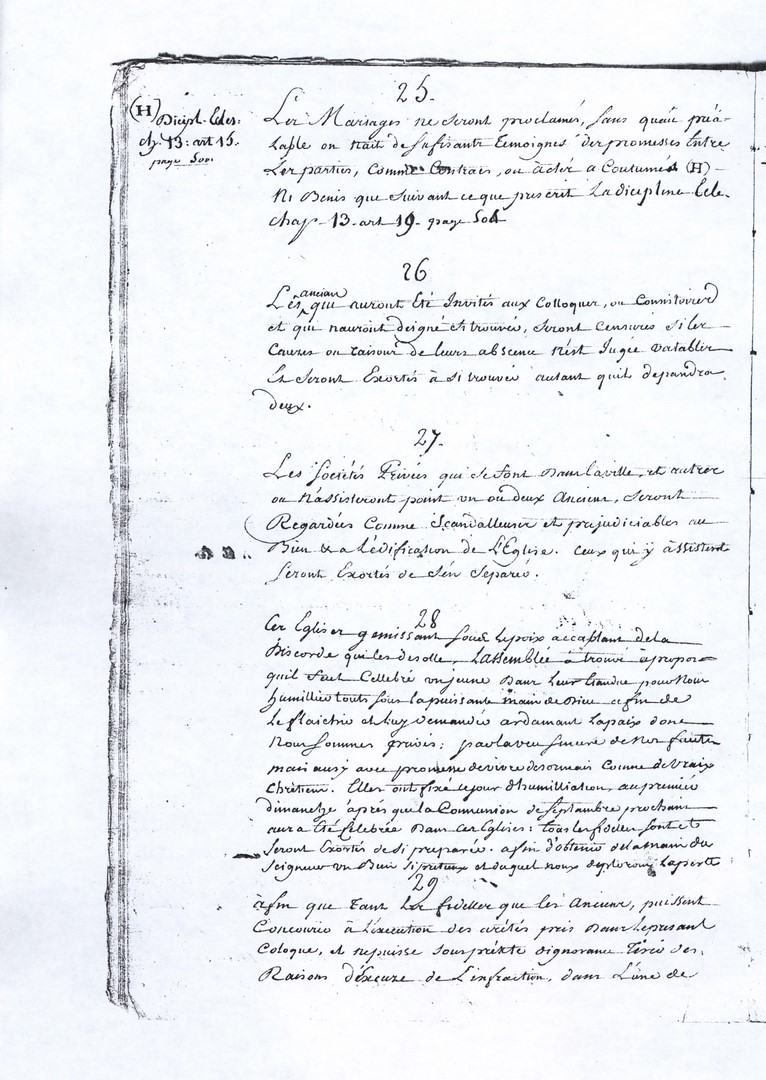 25.
(H) Dicipl. Ecles:
ch. 13. art 15.
page 500.
Les Mariages ne seront proclamés, sans qu'au préa-
lable on n'ait de sufisants Temoignes des promesses Entre
Les parties, Comme Contracs, ou actes a Coutumés (H) -
Ni Benis que suivant ce que prescrit La dicipline Ecle.
chap. 13. art 19. page 504
26
Les anciens qui auront Été Invités aux Colloques, ou Consistoires
et qui nauront deigné si trouvés, seront Censurés si les
Causes ou raisons de leurs absence n'est Jugée valables
Et seront Exortés à si trouvér autant quils dependra
deux.
27.
Les Sociétés Privées qui se font Dans la ville, et autres
ou N'assisteront point un ou deux Anciens, seront
Regardées Comme Scandalleuses et prejudiciables au
Bien & a L'édification de L'Eglise. Ceux qui y assistent
seront Exortés de s'en separér.
28
Ces Eglises gemissant sous le poix accablant de la
Discorde qui les desolle, L'assemblée à trouvé à propos
quil soit Cellebré un jeune Dans Leur pour Nous
humillier touts sous la puissante main de Dieu afin de
Le flaichir et Luy demandér ardamant la paix donc
Nous sommes privés; par l'aveu sincere de Nos fautes
mais aussy avec promesse de vivre desormais Comme de Vrais
Chrétiens. Elles ont fixé le jour d'humilliation, au premier
dimanche après que la Communion de Septembre prochain
aura Été Celebrée Dans Ces Eglises: tous les fidelles sont et
seront Exortés de si preparér. afin d'obtenir de la main du
Seigneur un Bien si pretieux et duquel nous deplorons la perte
29
à fin que Tant Les fidelles que les Anciens, puissent
Concourir à L'éxecution des arétés pris Dans Le presant
Cologue, et ne puisse sous préxte dignorance Tirér des
Raisons d'éxcuze de L'infraction, dans L'une de